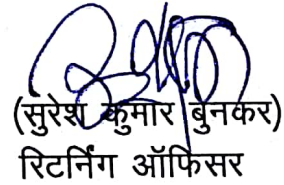 (सुरेश कुमार बुनकर)
रिटर्निंग ऑफिसर